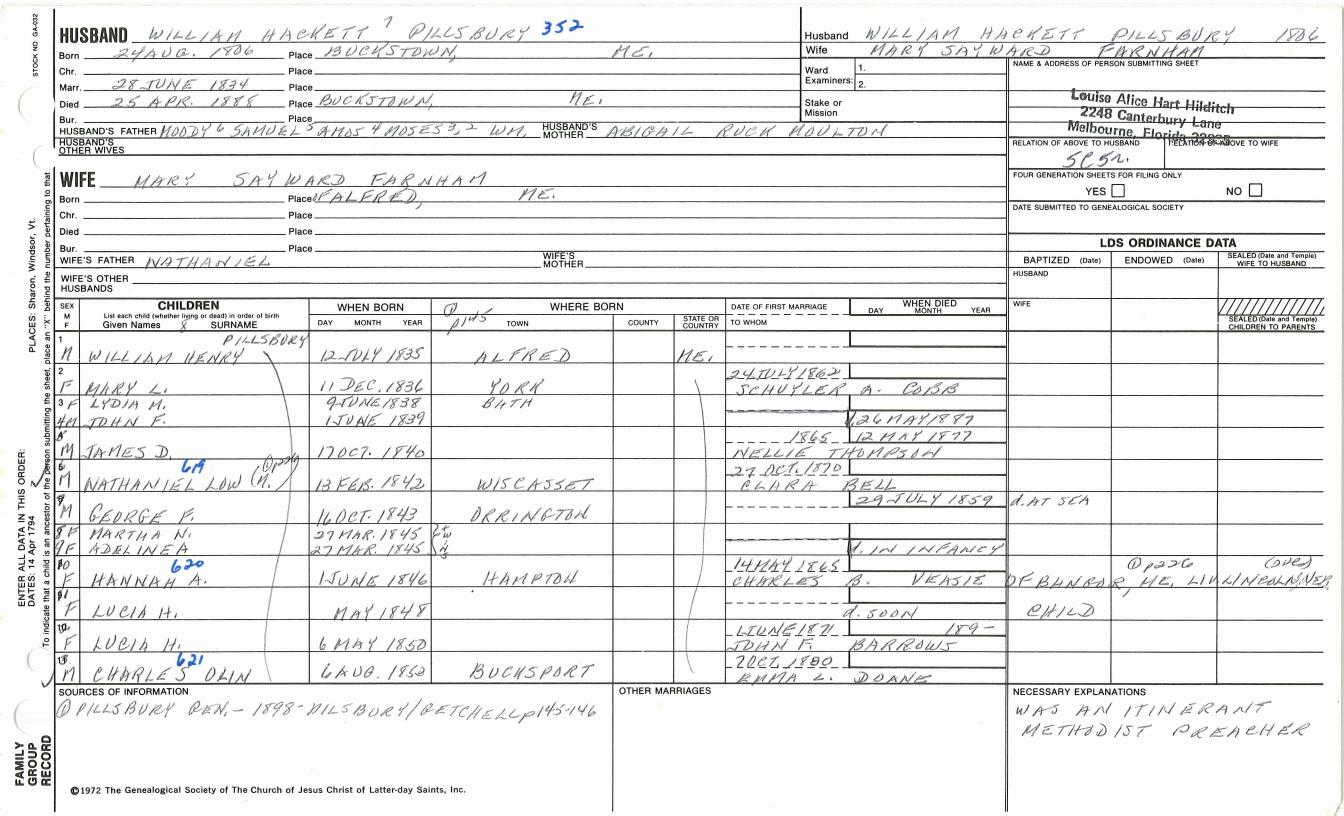 STOCK NO GA-032
HUSBAND WILLIAM HACKETT 7 PILLSBURY 352
Born 24 AUG. 1806 Place BUCKSTOWN, ME.
Chr. Place
Marr. 28 JUNE 1834 Place
Died 25 APR. 1888 Place BUCKSTOWN, ME.
Bur. Place
HUSBAND'S FATHER MOODY 6 SAMUEL 5 AMOS 4 MOSES 3, 2 WM, HUSBAND'S MOTHER ABIGAIL RUCK MOULTON
HUSBAND'S OTHER WIVES
WIFE MARY SAYWARD FARNHAM
Born Place ALFRED, ME.
Chr. Place
Died Place
Bur. Place
WIFE'S FATHER NATHANIEL WIFE'S MOTHER
WIFE'S OTHER HUSBANDS
Husband WILLIAM HACKETT PILLSBURY 1806
Wife MARY SAYWARD FARNHAM
Ward Examiners: 1. 2.
Stake or Mission
NAME & ADDRESS OF PERSON SUBMITTING SHEET
Louise Alice Hart Hilditch
2248 Canterbury Lane
Melbourne, Florida
RELATION OF ABOVE TO HUSBAND RELATION OF ABOVE TO WIFE
FOUR GENERATION SHEETS FOR FILING ONLY
YES NO
DATE SUBMITTED TO GENEALOGICAL SOCIETY
LDS ORDINANCE DATA
BAPTIZED (Date) ENDOWED (Date) SEALED (Date and Temple) WIFE TO HUSBAND
HUSBAND
WIFE
SEALED (Date and Temple) CHILDREN TO PARENTS
SEX M F CHILDREN List each child (whether living or dead) in order of birth Given Names & SURNAME WHEN BORN DAY MONTH YEAR WHERE BORN TOWN COUNTY STATE OR COUNTRY DATE OF FIRST MARRIAGE TO WHOM WHEN DIED DAY MONTH YEAR
① p145
PILLSBURY
1 M WILLIAM HENRY 12 JULY 1835 ALFRED ME.
2 F MARY L. 11 DEC. 1836 YORK 24 JULY 1862 SCHUYLER A. COBB
3 F LYDIA M. 9 JUNE 1838 BATH
4 M JOHN F. 1 JUNE 1839 26 MAY 1887
5 M JAMES D. 17 OCT. 1840 1865 NELLIE THOMPSON 12 MAY 1877
619
6 M NATHANIEL LOW (M.) ① p226 13 FEB. 1842 WISCASSET 27 OCT. 1870 CLARA BELL
7 M GEORGE F. 16 OCT. 1843 ORRINGTON 29 JULY 1859 d. AT SEA
8 F MARTHA N. 27 MAR. 1845
9 F ADELINE A 27 MAR. 1845 d. IN INFANCY
620
10 F HANNAH A. 1 JUNE 1846 HAMPTON 14 MAY 1865 CHARLES B. VEASIE ① p226 (over)
OF BANGOR, ME. LIV. LINCOLN, NER.
11 F LUCIA H. MAY 1848 d. SOON CHILD
12 F LUCIA H. 6 MAY 1850 1 JUNE 1871 JOHN F. BARROWS 189-
621
13 M CHARLES OLIN 6 AUG. 1853 BUCKSPORT 7 OCT. 1880 EMMA L. DOANE
SOURCES OF INFORMATION
① PILLSBURY GEN. - 1898- PILSBURY/GETCHELL p145-146
OTHER MARRIAGES
NECESSARY EXPLANATIONS
WAS AN ITINERANT
METHODIST PREACHER
©1972 The Genealogical Society of The Church of Jesus Christ of Latter-day Saints, Inc.
FAMILY GROUP RECORD
ENTER ALL DATA IN THIS ORDER:
DATES: 14 Apr 1794 PLACES: Sharon, Windsor, Vt.
To indicate that a child is an ancestor of the person submitting the sheet, place an "X" behind the number pertaining to that